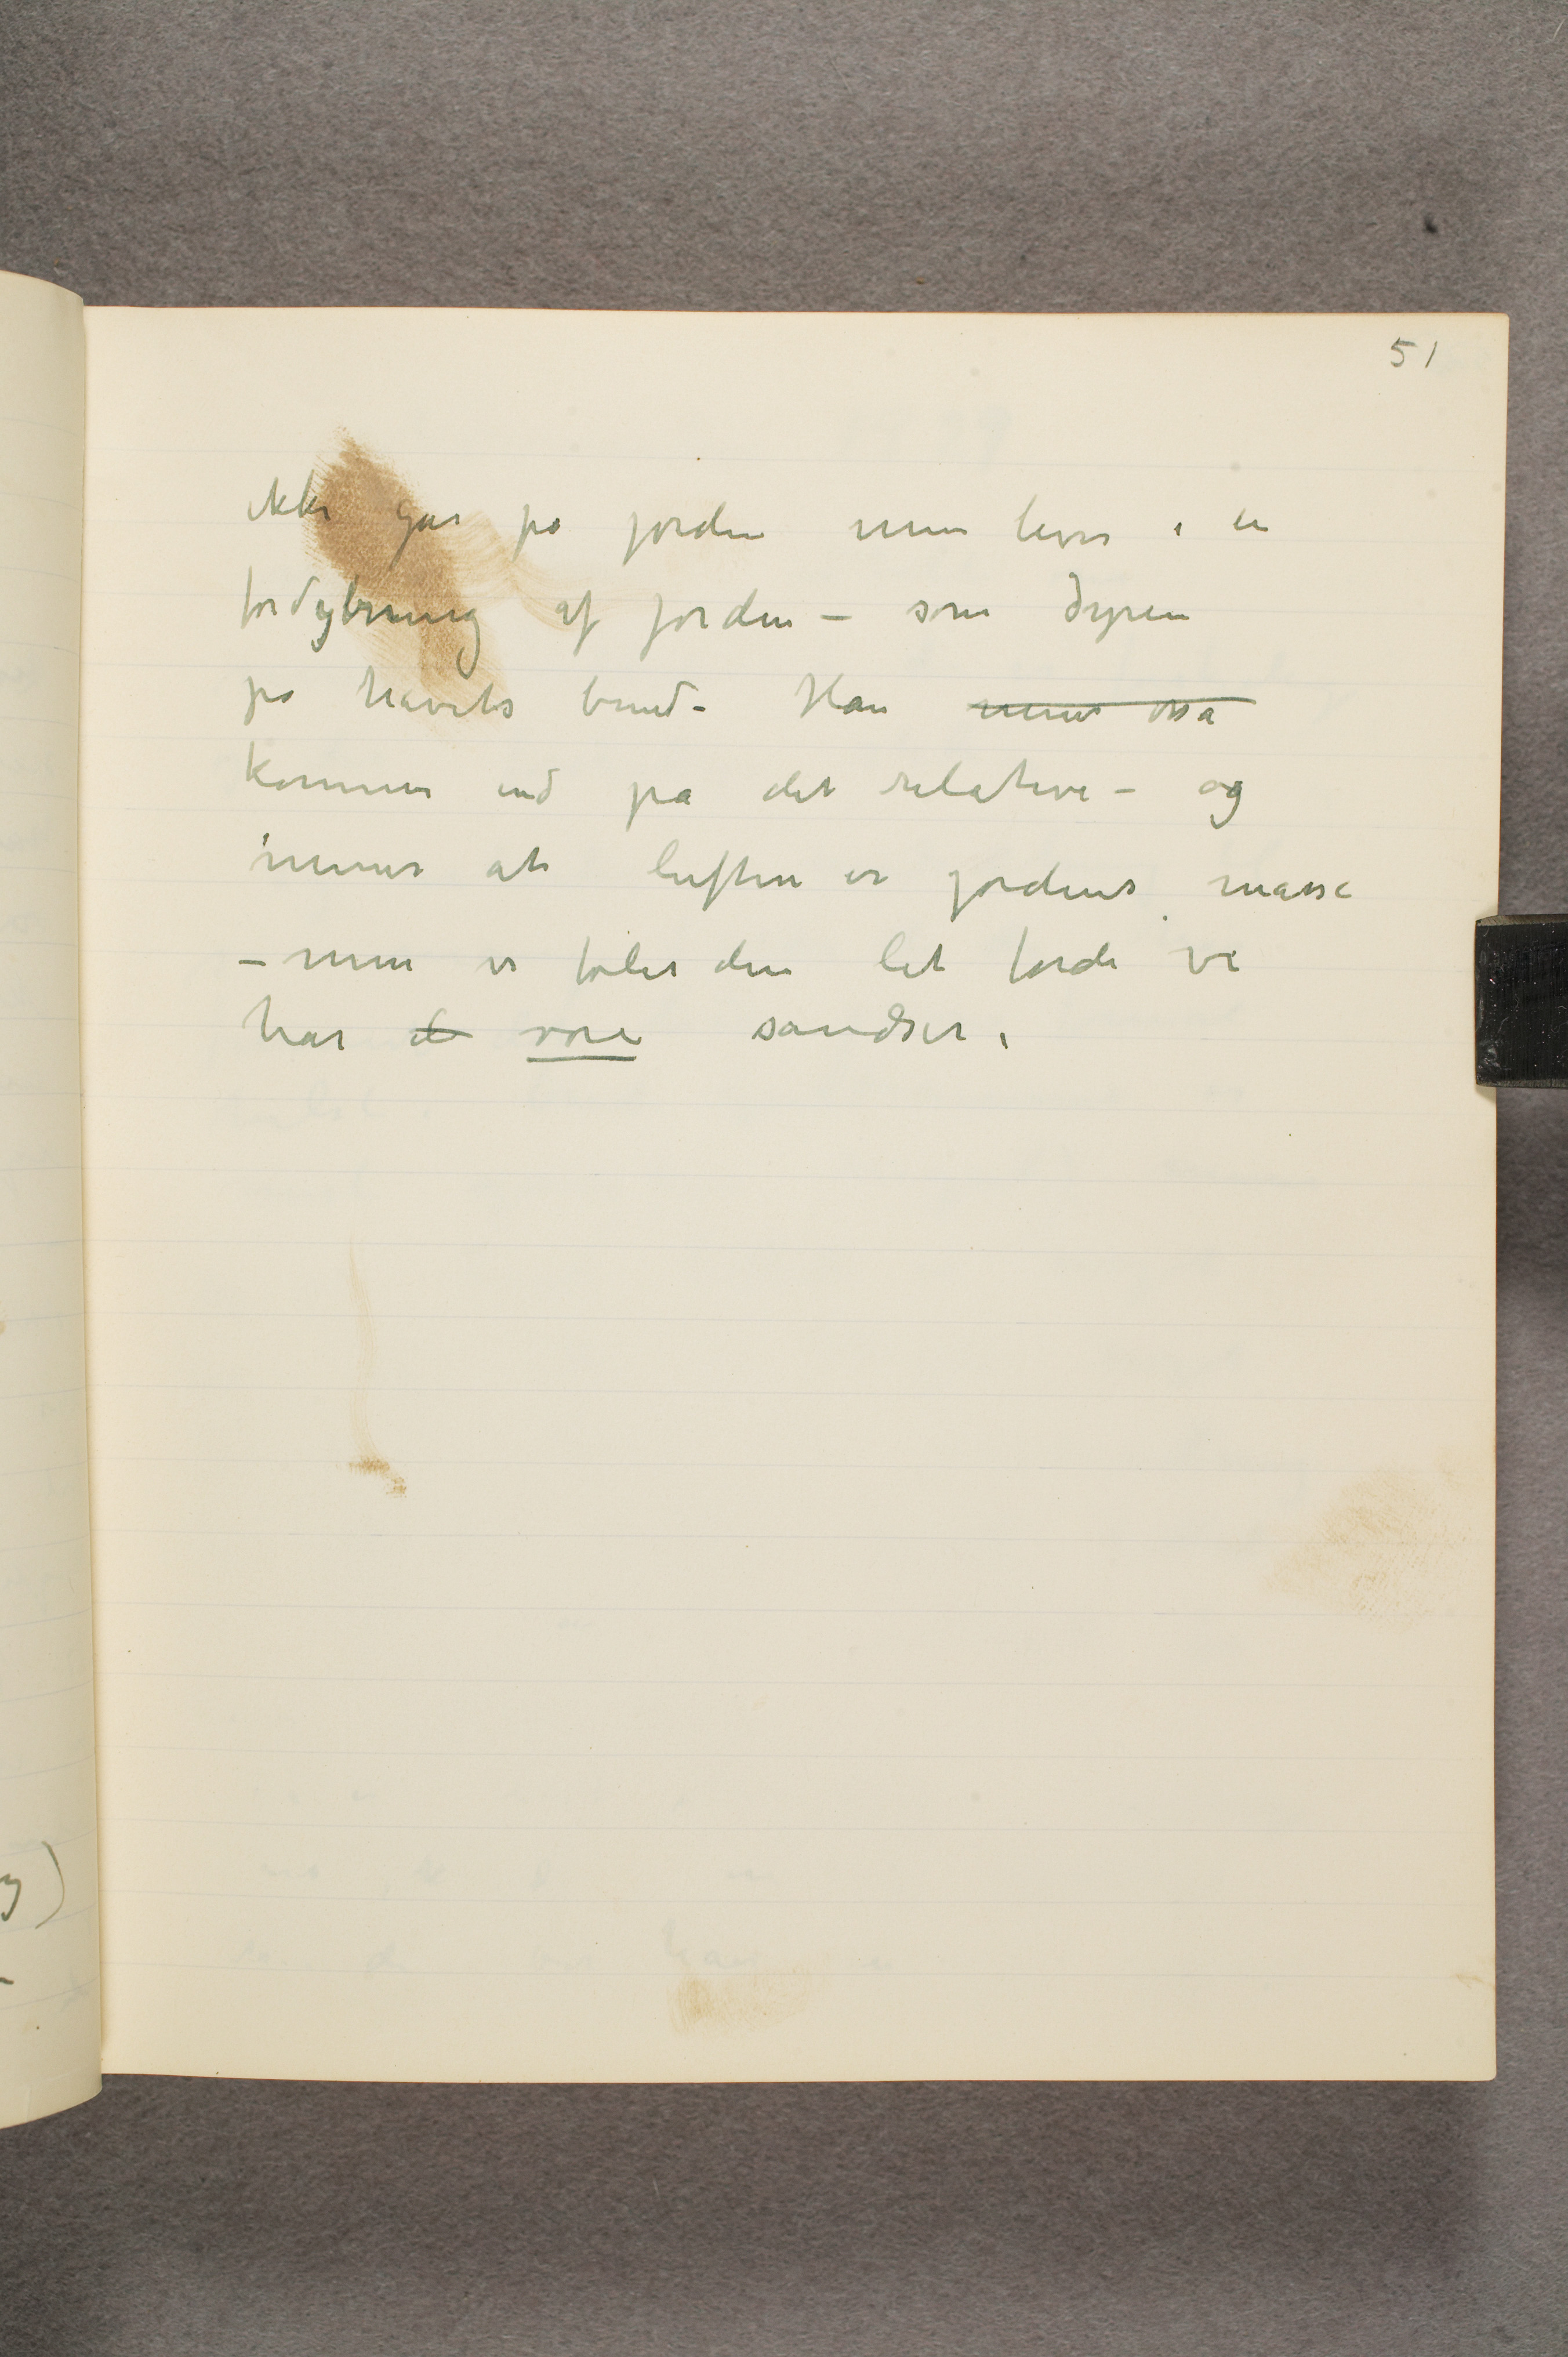 51
ikke går på jorden men lever i en
fordybning af jorden – som dyrene
på havets bund – Han mener også
kommer ind på det relative – og
mener at luften er jordens masse
– men vi føler den let fordi vi
har d vore sandser.